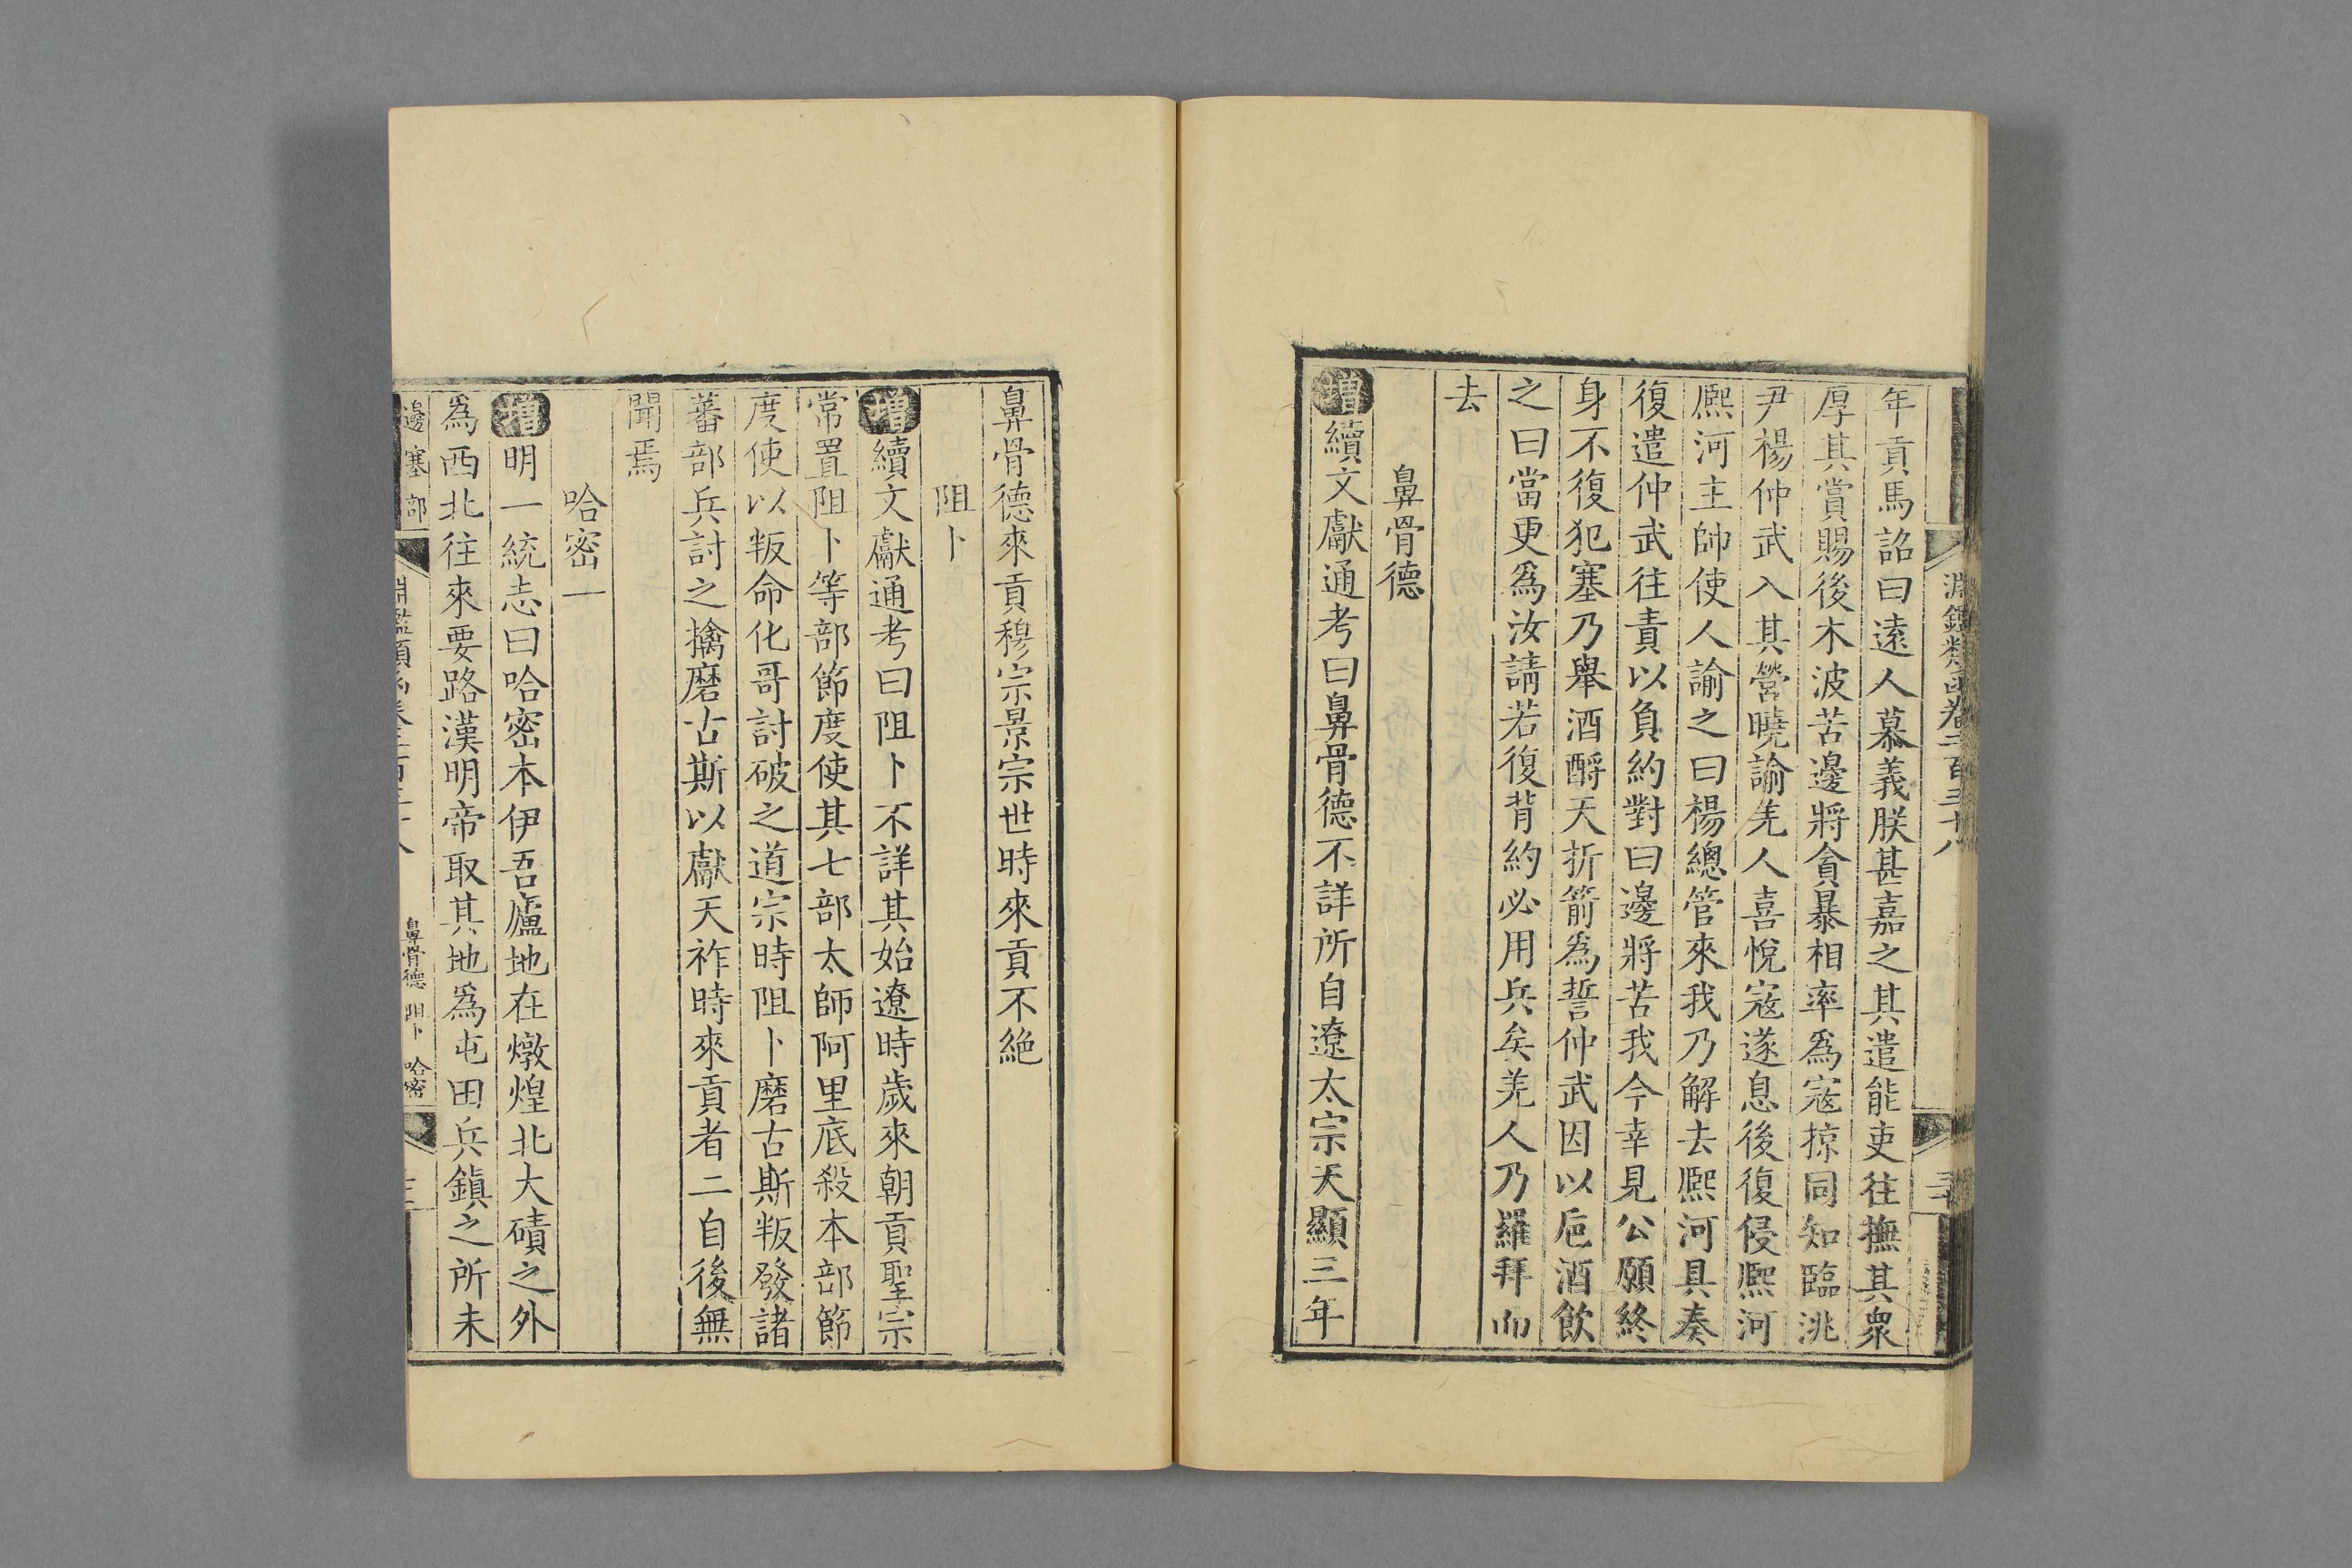 淵鑑類函卷二百三十八
年貢馬詔曰遠人慕義朕甚嘉之其遣能吏往撫其衆
厚其賞賜後木波苦邊將貪暴相率爲寇掠同知臨洮
尹楊仲武入其營曉諭羌人喜悅寇遂息後復侵熈河
熈河主帥使人諭之曰楊總管來我乃解去熈河具奏
復遣仲武往責以負約對曰邊將苦我今幸見公願終
身不復犯塞乃舉酒酹天折箭爲誓仲武因以巵酒飲
之曰當更爲汝請若復背約必用兵矣羌人乃羅拜而
去
鼻骨德
增續文獻通考曰鼻骨德不詳所自遼太宗天顯三年
鼻骨德來貢穆宗景宗世時來貢不絶
阻卜
增續文獻通考曰阻卜不詳其始遼時歲來朝貢聖宗
常置阻卜等部節度使其七部太師阿里底殺本部節
度使以叛命化哥討破之道宗時阻卜磨古斯叛發諸
蕃部兵討之擒磨古斯以獻天祚時來貢者二自後無
聞焉
哈密一
增明一統志曰哈密本伊吾廬地在燉煌北大磧之外
爲西北往來要路漢明帝取其地爲屯田兵鎮之所未
邊塞部
鼻骨德 阻卜 哈密